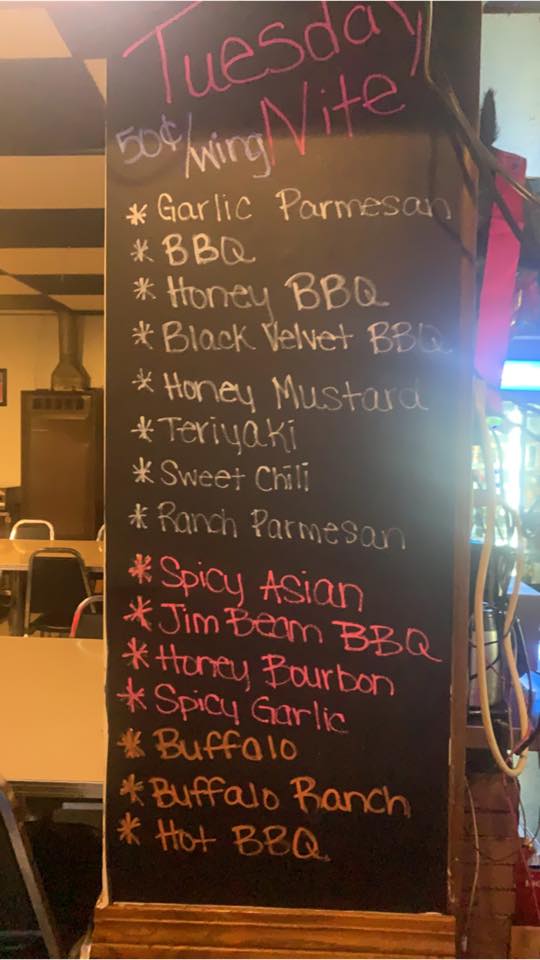 Tuesday
50¢/wing Nite
* Garlic Parmesan
* BBQ
* Honey BBQ
* Black Velvet BBQ
* Honey Mustard
* Teriyaki
* Sweet Chili
* Ranch Parmesan
* Spicy Asian
* Jim Beam BBQ
* Honey Bourbon
* Spicy Garlic
* Buffalo
* Buffalo Ranch
* Hot BBQ